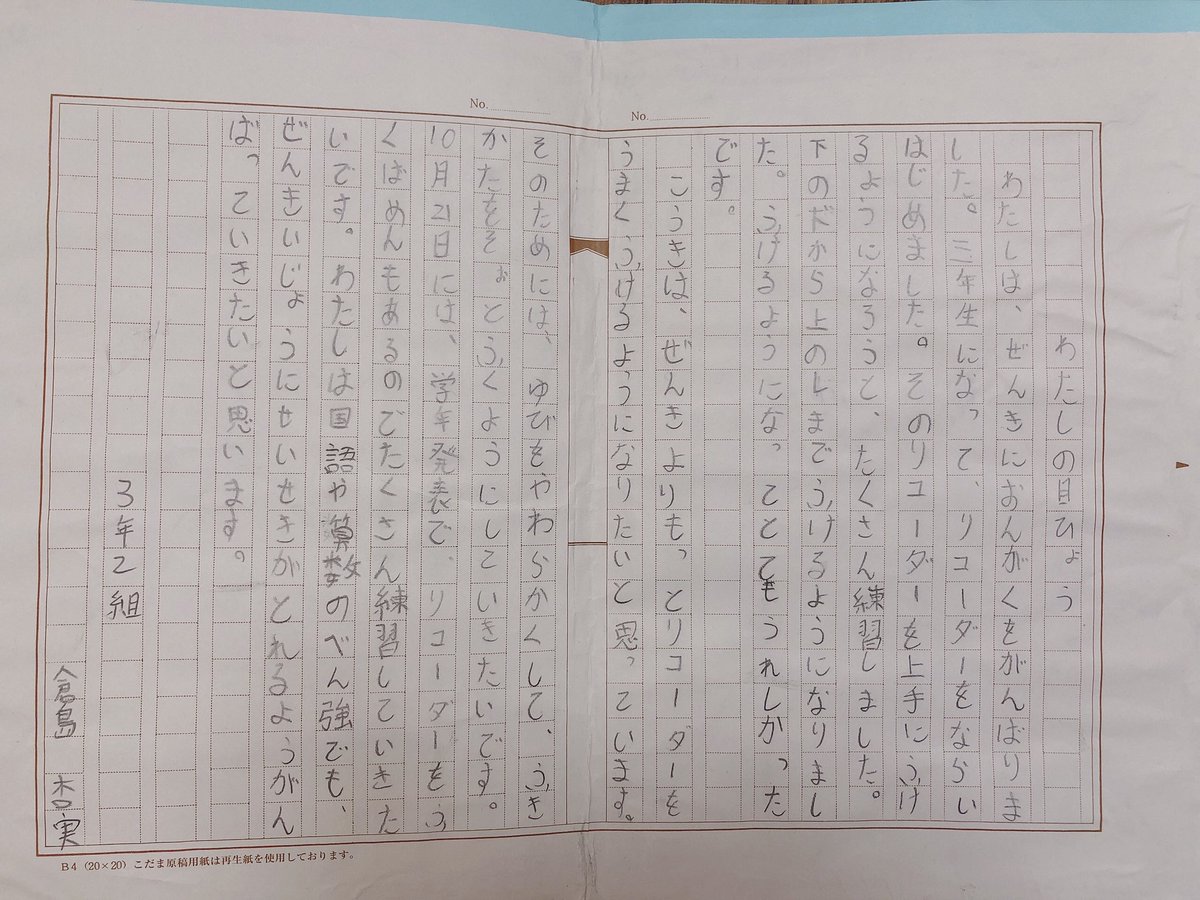 No.
No.
わたしの目ひょう
わたしは、ぜんきにおんがくをがんばりま
した。三年生になって、リコーダーをならい
はじめました。そのリコーダーを上手にふけ
るようになろうと、たくさん練習しました。
下のドから上のレまでふけるようになりまし
た。ふけるようになってとてもうれしかった
です。
こうきは、ぜんきよりもっとリコーダーを
うまくふけるようになりたいと思っています。
そのためには、ゆびをやわらかくして、ふき
かたをそぉっとふくようにしていきたいです。
10月21日には、学年発表で、リコーダーをふ
くばめんもあるのでたくさん練習していきた
いです。わたしは国語や算数のべん強でも、
ぜんきいじょうにせいせきがとれるようがん
ばっていきたいと思います。
3年2組
倉島 杏実
B4(20×20)こだま原稿用紙は再生紙を使用しております。